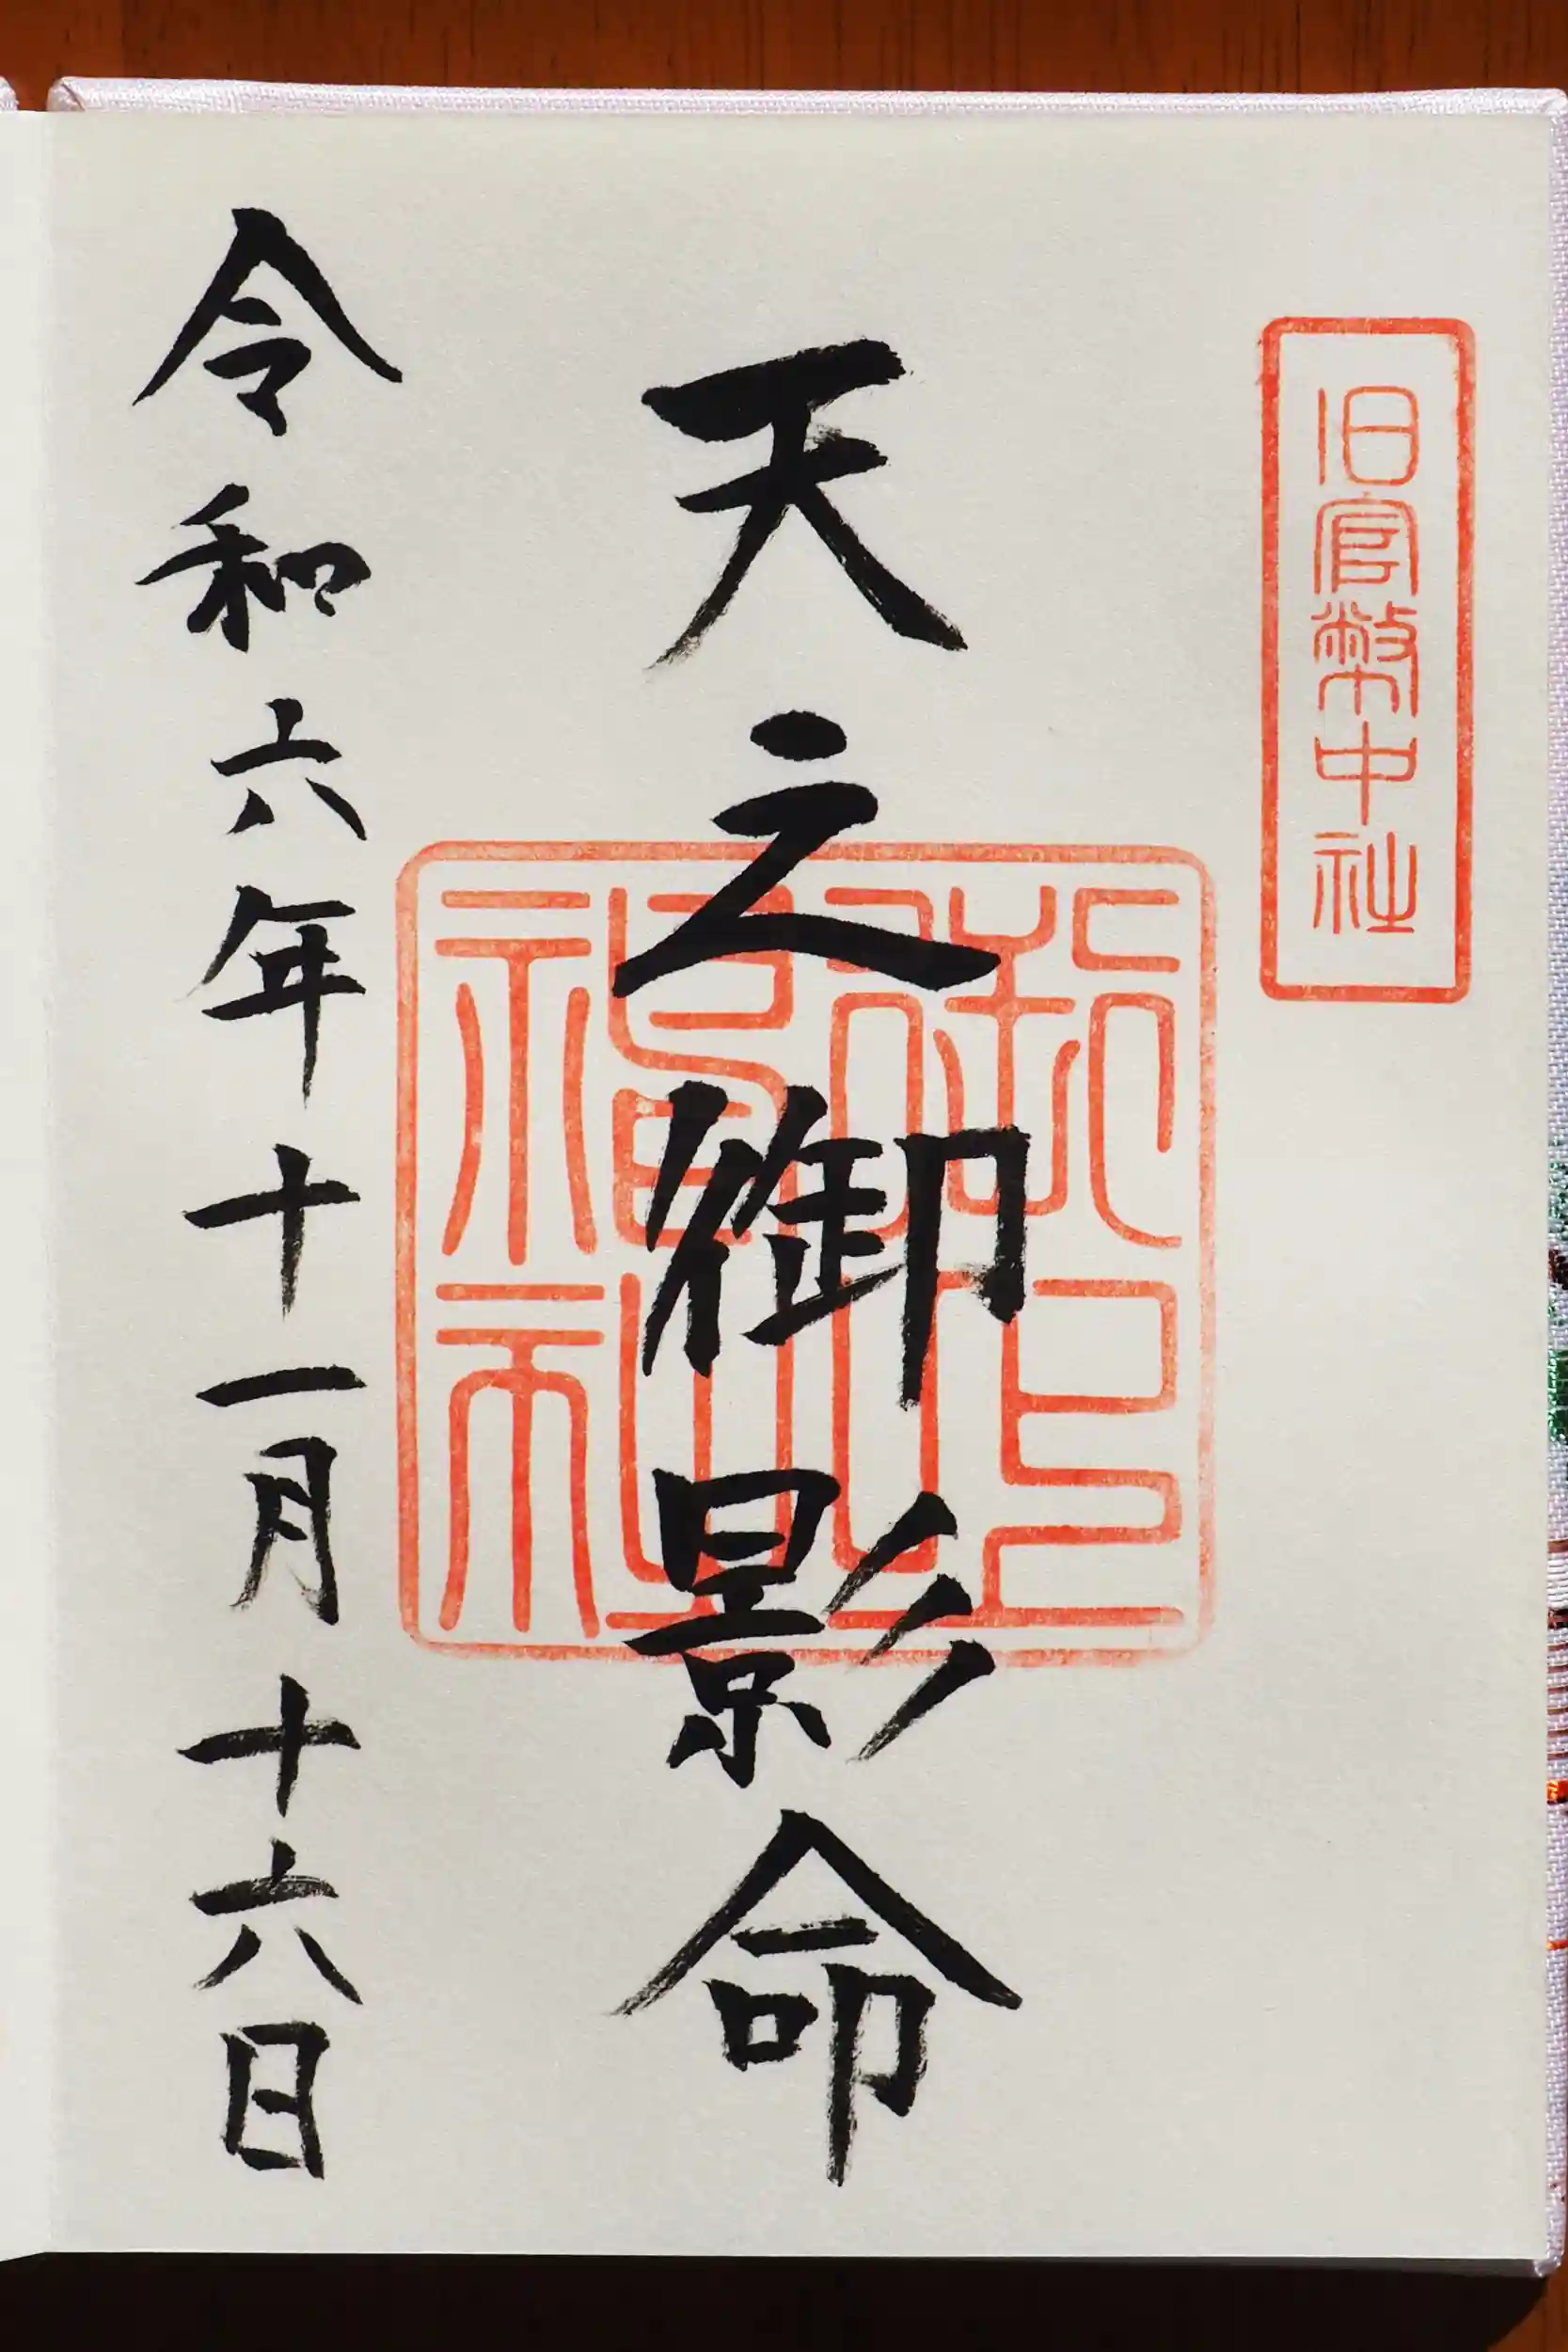 旧官幣中社
天之御影命
御上
神社
令和六年十一月十六日